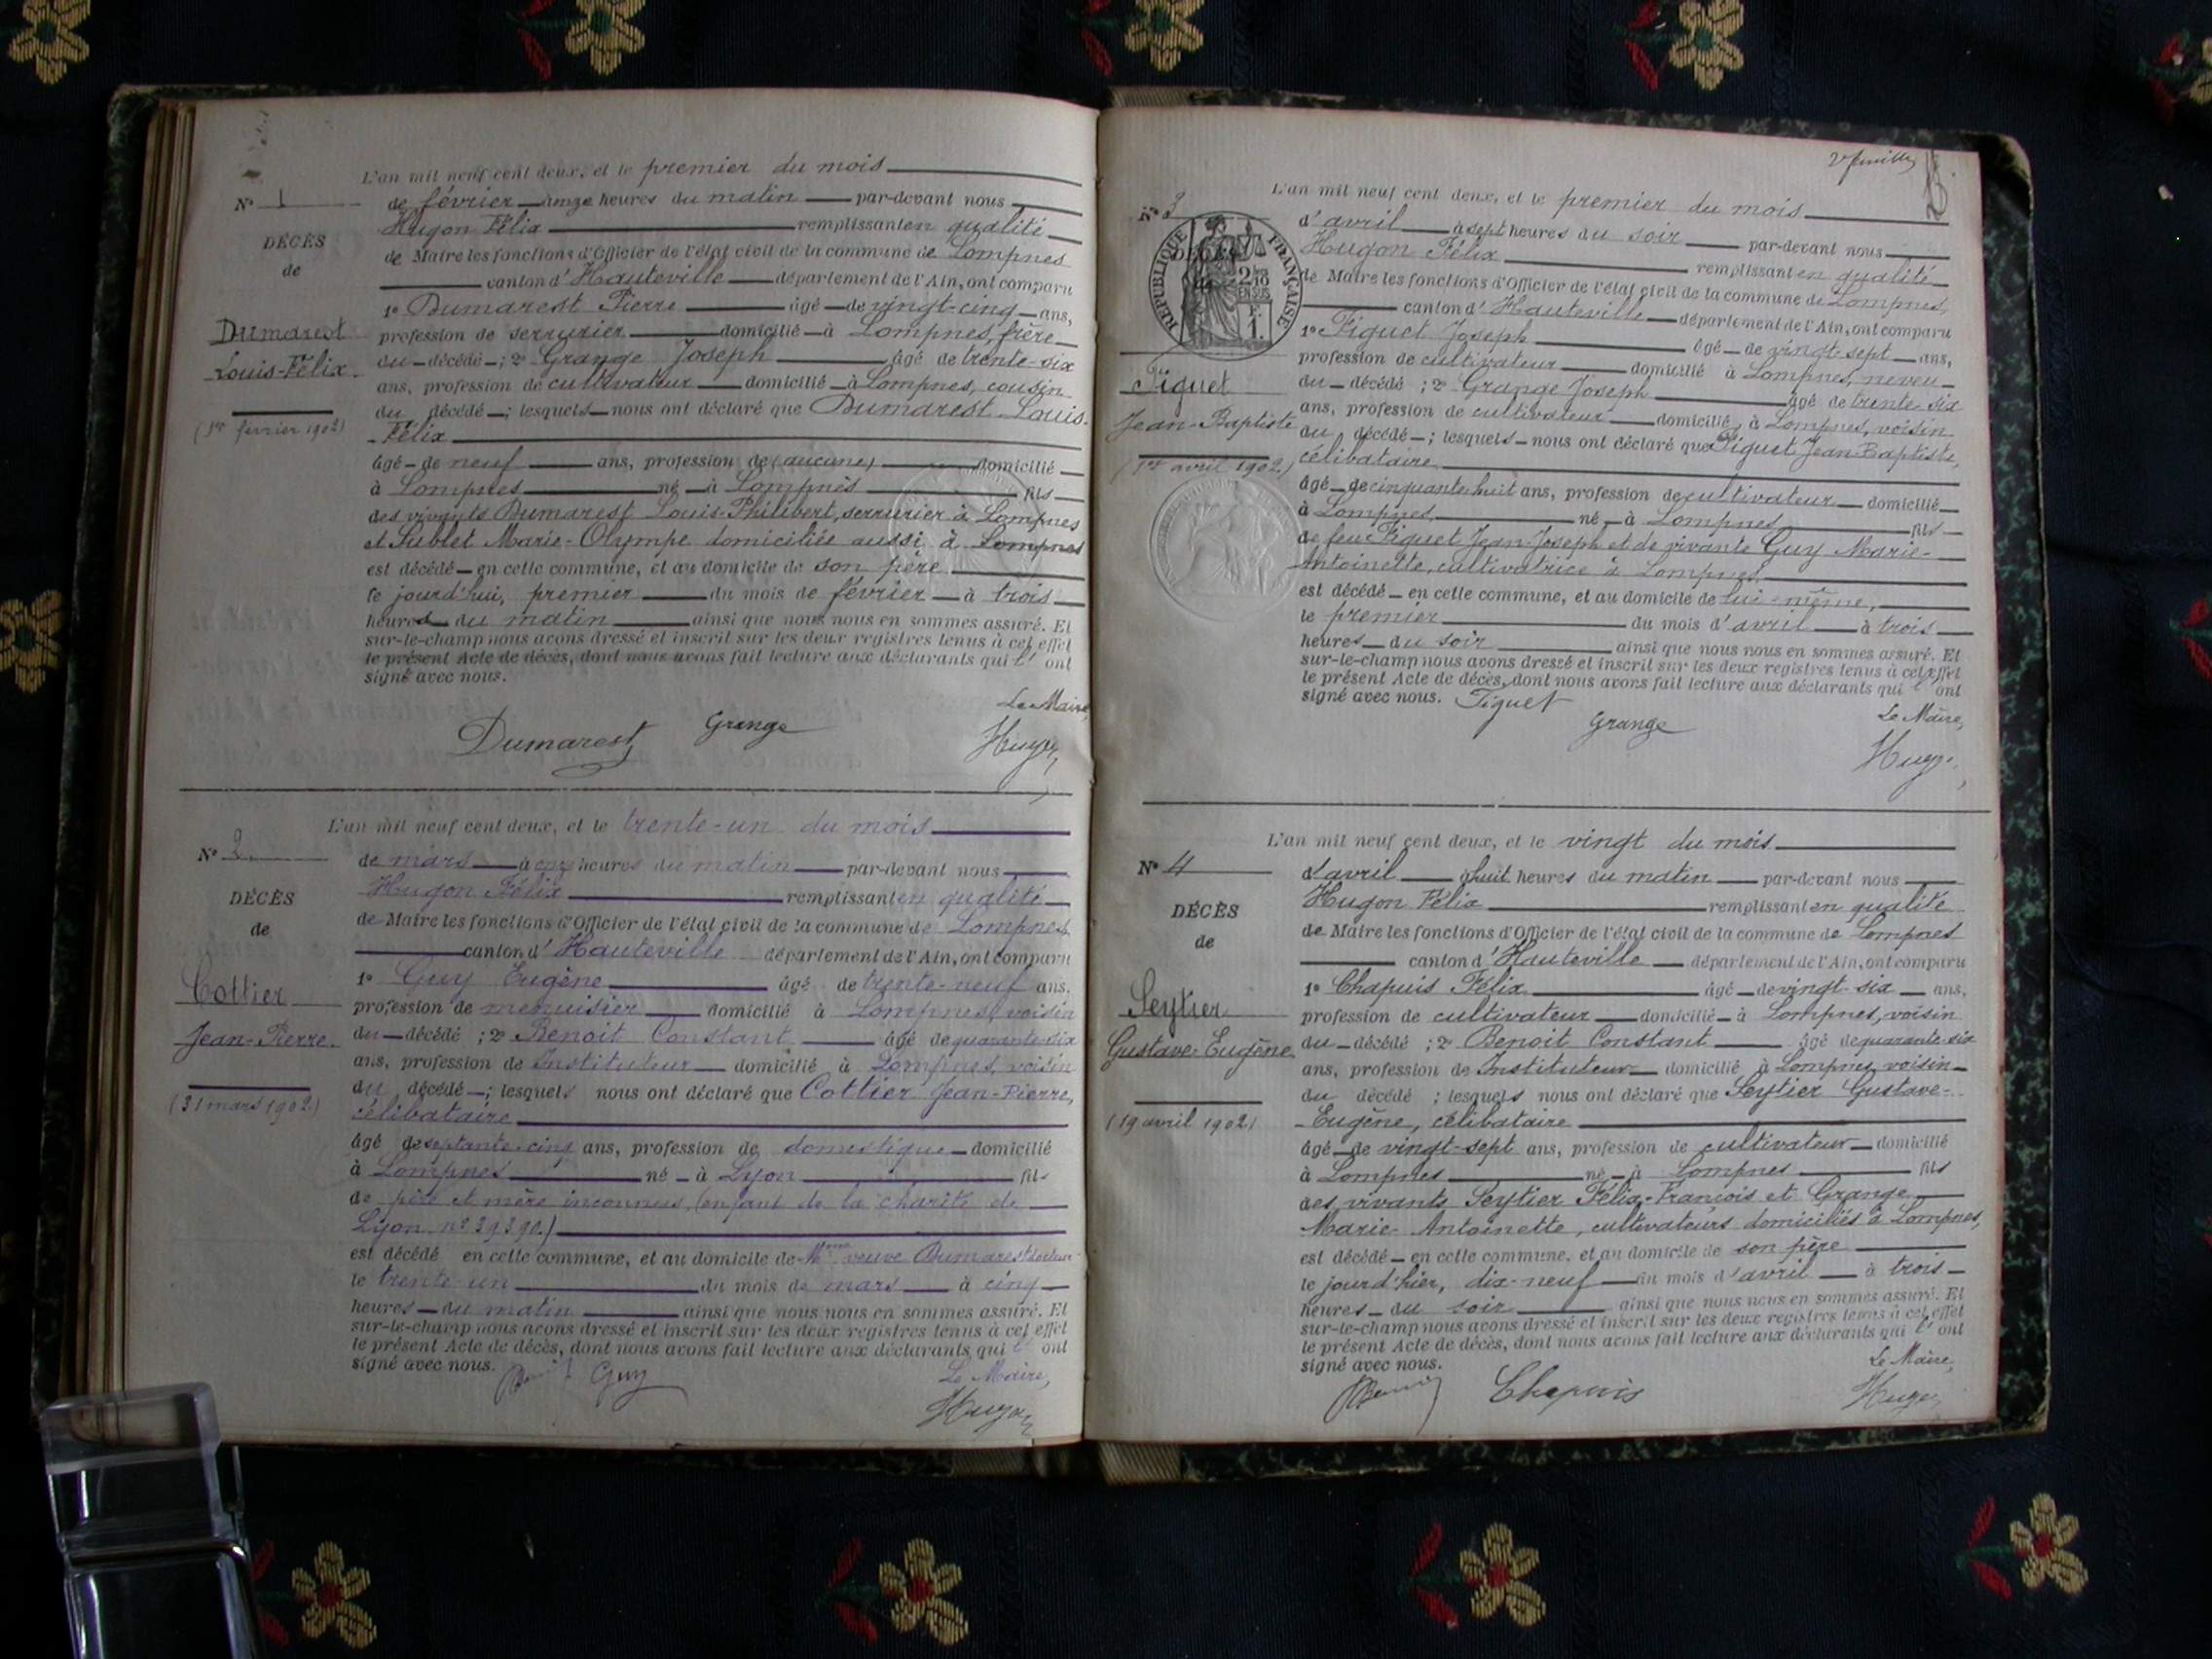 L'an mil neuf cent deux, et le premier du mois
N° 1
de février à onze heures du matin par-devant nous
Hugon Félix remplissant en qualité
DÉCÈS
de Maire les fonctions d'Officier de l'état civil de la commune de Lompnes
de
canton d'Hauteville département de l'Ain, ont comparu
1° Dumarest Pierre âgé de vingt-cinq ans,
Dumarest
profession de serrurier domicilié à Lompnes, frère
du décédé ; 2° Grange Joseph âgé de trente-six
Louis-Félix
ans, profession de cultivateur domicilié à Lompnes, cousin
du décédé ; lesquels nous ont déclaré que Dumarest Louis-
(1er février 1902)
-Félix
âgé de neuf ans, profession de (aucune) domicilié
à Lompnes né à Lompnès fils
des vivants Dumarest Louis-Philibert, serrurier à Lompnes
et Sublet Marie-Olympe domiciliée aussi à Lompnes
est décédé en cette commune, et au domicile de son père
le jourd'hui, premier du mois de février à trois
heures du matin ainsi que nous nous en sommes assuré. Et
sur-le-champ nous avons dressé et inscrit sur les deux registres tenus à cet effet
le présent Acte de décès, dont nous avons fait lecture aux déclarants qui l' ont
signé avec nous.
Le Maire,
Dumarest Grange Hugon
L'an mil neuf cent deux, et le trente-un du mois
N° 2
de mars à onze heures du matin par-devant nous
Hugon Félix remplissant en qualité
DÉCÈS
de Maire les fonctions d'Officier de l'état civil de la commune de Lompnes
de
canton d'Hauteville département de l'Ain, ont comparu
1° Guy Eugène âgé de trente-neuf ans,
Cottier
profession de menuisier domicilié à Lompnes, voisin
du décédé ; 2° Benoit Constant âgé de quarante-six
Jean-Pierre.
ans, profession de Instituteur domicilié à Lompnes, voisin
du décédé ; lesquels nous ont déclaré que Cottier Jean-Pierre,
(31 mars 1902)
célibataire
âgé de septante-cinq ans, profession de domestique domicilié
à Lompnes né à Lyon fils
de père et mère inconnus (enfant de la charité de
Lyon n° 39390.)
est décédé en cette commune, et au domicile de Mme veuve Dumarest
le trente-un du mois de mars à cinq
heures du matin ainsi que nous nous en sommes assuré. Et
sur-le-champ nous avons dressé et inscrit sur les deux registres tenus à cet effet
le présent Acte de décès, dont nous avons fait lecture aux déclarants qui l' ont
signé avec nous.
Le Maire,
Guy Hugon
2e feuille
L'an mil neuf cent deux, et le premier du mois
N° 3
d'avril à sept heures du soir par-devant nous
Hugon Félix remplissant en qualité
RÉPUBLIQUE FRANÇAISE
DÉCÈS
2/10 EN SUS
de Maire les fonctions d'Officier de l'état civil de la commune de Lompnes,
canton d'Hauteville département de l'Ain, ont comparu
1° Figuet Joseph âgé de vingt-sept ans,
profession de cultivateur domicilié à Lompnes, neveu
Figuet
du décédé ; 2° Grange Joseph âgé de trente-six
ans, profession de cultivateur domicilié à Lompnes, voisin
Jean-Baptiste
du décédé ; lesquels nous ont déclaré que Figuet Jean-Baptiste,
(1er avril 1902)
célibataire
âgé de cinquante-huit ans, profession de cultivateur domicilié
à Lompnes né à Lompnes fils
de feu Figuet Jean-Joseph et de vivante Guy Marie-
Antoinette, cultivatrice à Lompnes.
est décédé en cette commune, et au domicile de lui-même,
le premier du mois d'avril à trois
heures du soir ainsi que nous nous en sommes assuré. Et
sur-le-champ nous avons dressé et inscrit sur les deux registres tenus à cet effet
le présent Acte de décès, dont nous avons fait lecture aux déclarants qui l' ont
signé avec nous. Figuet
Le Maire,
Grange Hugon
L'an mil neuf cent deux, et le vingt du mois
N° 4
d'avril à huit heures du matin par-devant nous
Hugon Félix remplissant en qualité
DÉCÈS
de Maire les fonctions d'Officier de l'état civil de la commune de Lompnes
de
canton d'Hauteville département de l'Ain, ont comparu
1° Chapuis Félix âgé de vingt-six ans,
Seytier
profession de cultivateur domicilié à Lompnes, voisin
Gustave-Eugène
du décédé ; 2° Benoit Constant âgé de quarante-six
ans, profession de Instituteur domicilié à Lompnes, voisin
du décédé ; lesquels nous ont déclaré que Seytier Gustave-
(19 avril 1902)
-Eugène, célibataire
âgé de vingt-sept ans, profession de cultivateur domicilié
à Lompnes né à Lompnes fils
des vivants Seytier Félix-François et Grange
Marie-Antoinette, cultivateurs domiciliés à Lompnes,
est décédé en cette commune, et au domicile de son père
le jourd'hier, dix-neuf du mois d'avril à trois
heures du soir ainsi que nous nous en sommes assuré. Et
sur-le-champ nous avons dressé et inscrit sur les deux registres tenus à cet effet
le présent Acte de décès, dont nous avons fait lecture aux déclarants qui l' ont
signé avec nous.
Le Maire,
Chapuis Hugon